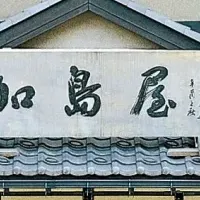 加島屋